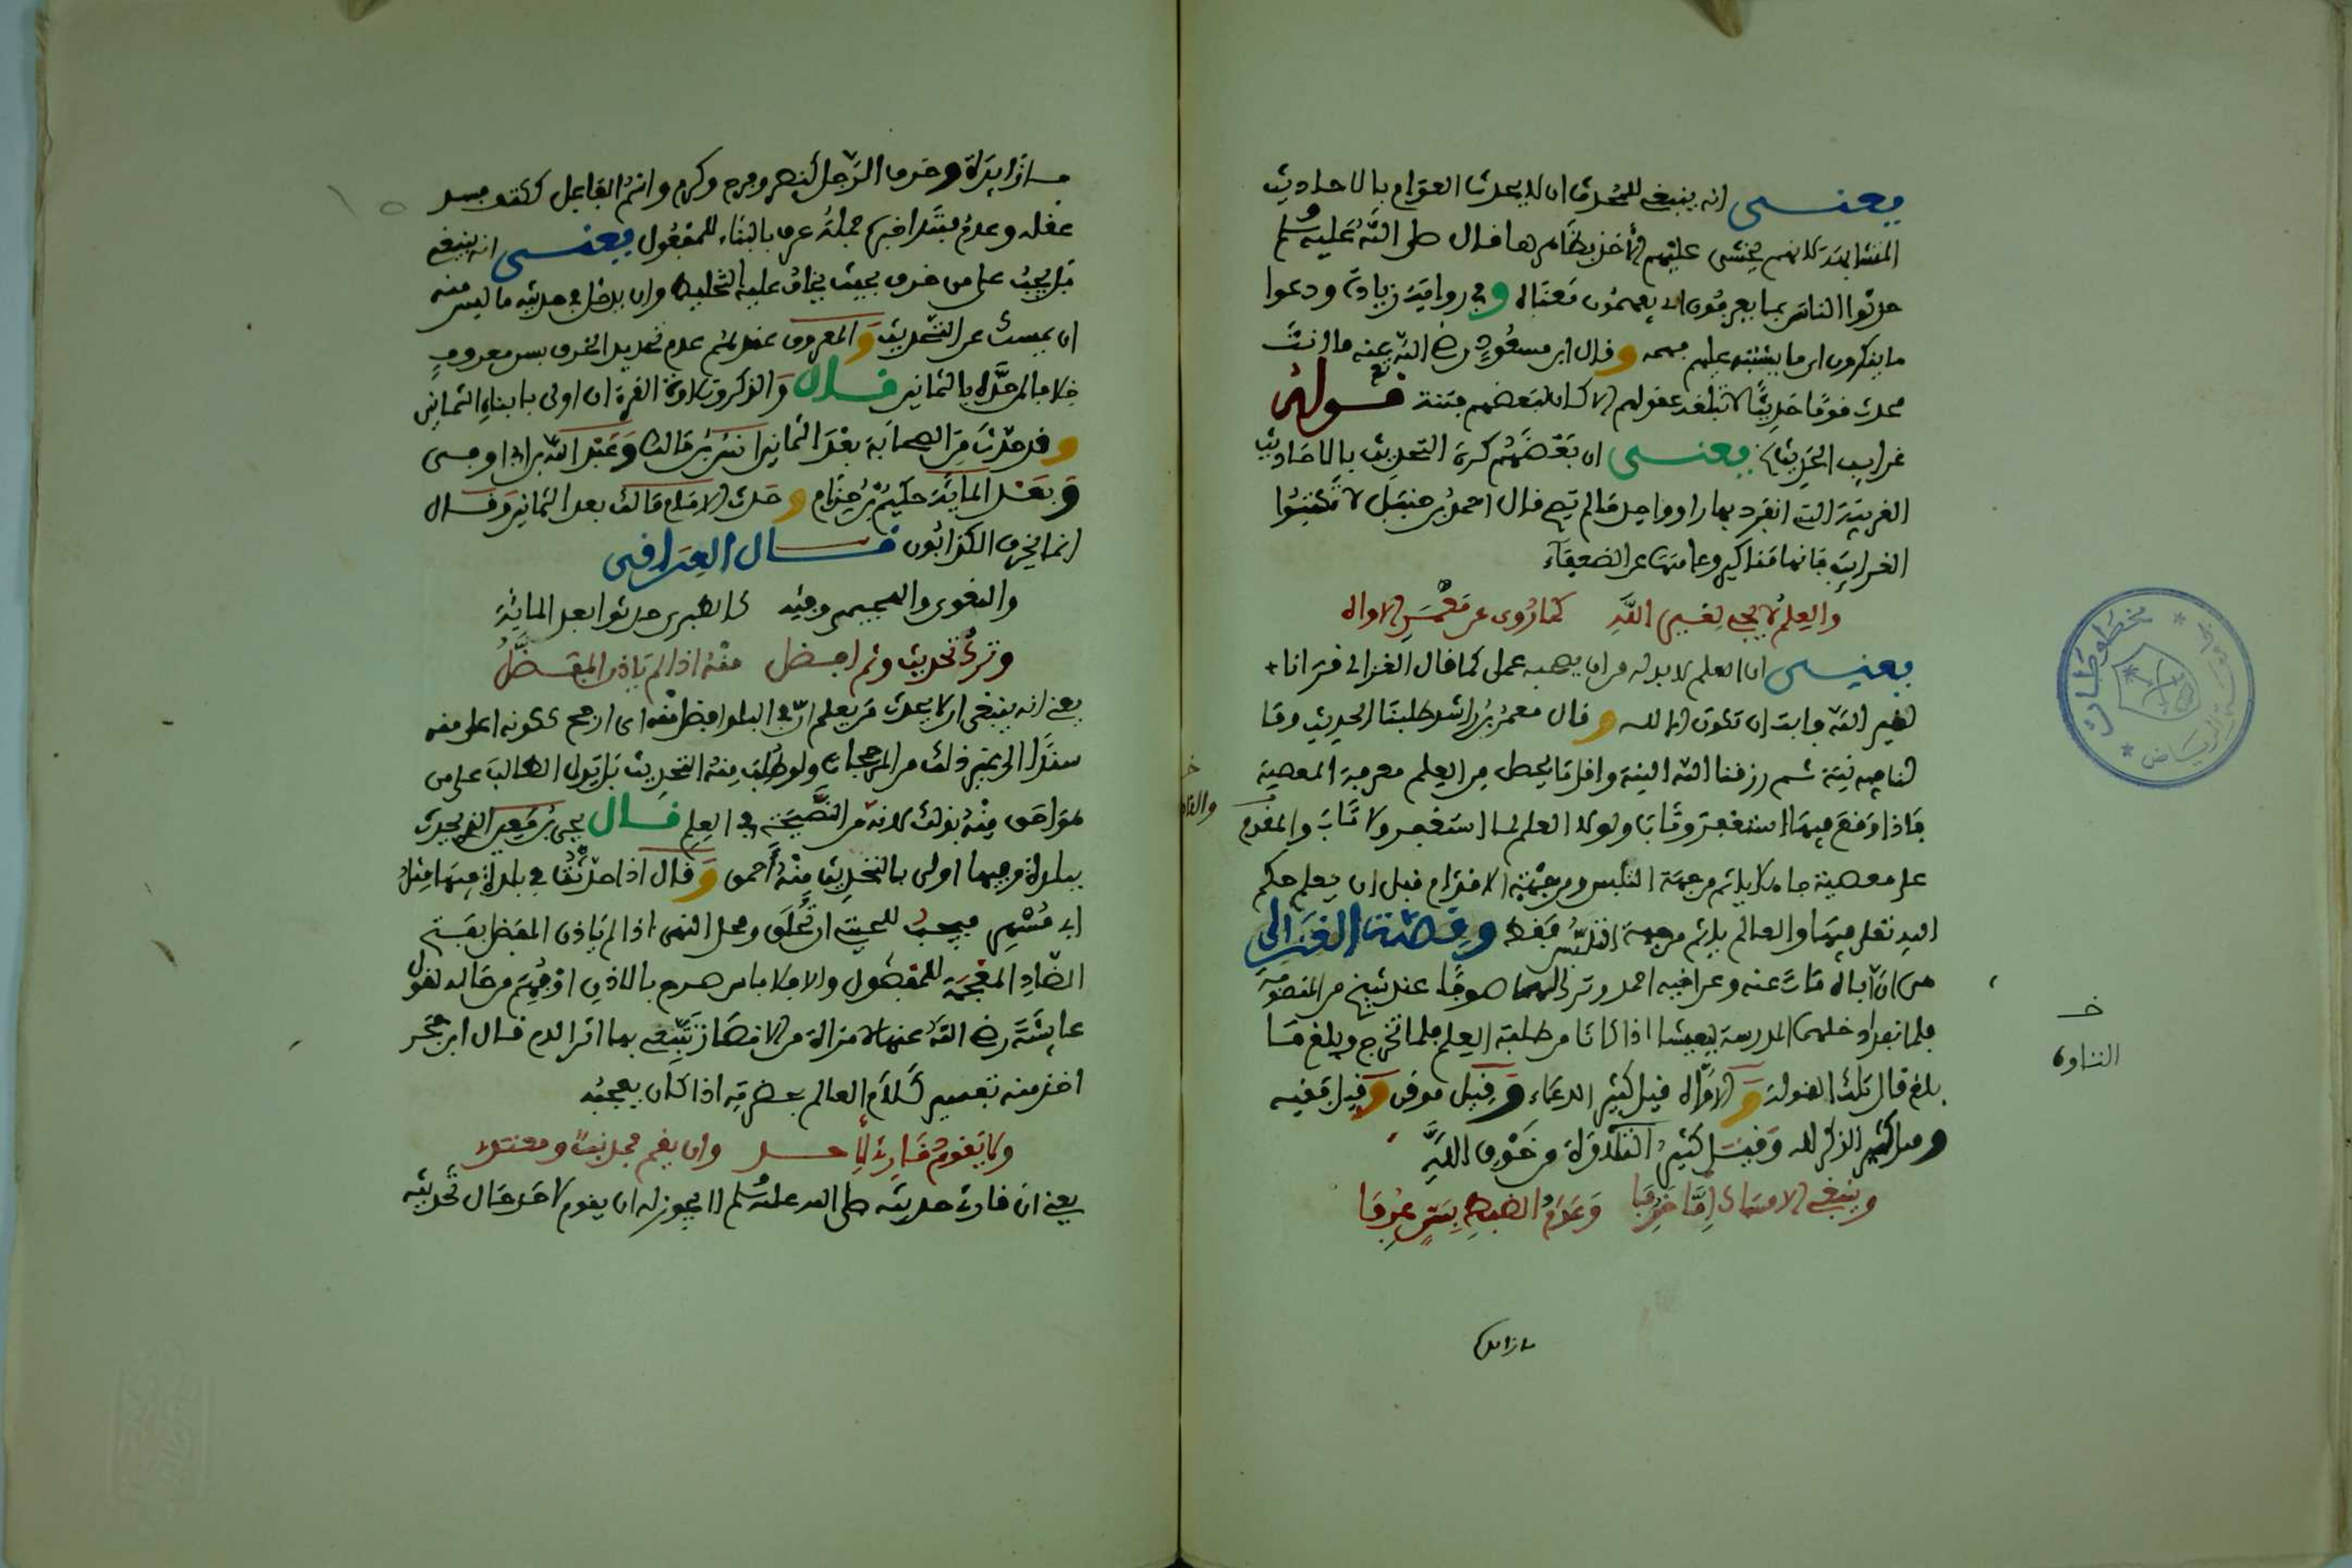 يعنى انه ينبغى للمحدث ان لا يحدث العوام بالاحاديث
المتشابهة لانهم يخشى عليهم الأخذ بظاهرها قال صلى الله عليه وسلم
حدثوا الناس بما يعرفون اى يفهمون معناه وفى رواية زيادة ودعوا
ما ينكرون اى ما يشتبه عليهم فهمه وقال ابن مسعود رضى الله عنه ما انت
محدث قوما حديثا لا تبلغه عقولهم الا كان لبعضهم فتنة قوله
غرايب الحديث يعنى ان بعضهم كره التحديث بالاحاديث
الغريبة التى انفرد بها راو واحد قال احمد بن حنبل لا تكتبوا
الغرايب فانها مناكير وعامتها عن الضعفاء
والعلم لا يجى لغير الله كما روى عن معمر الاواه
يعنى ان العلم لا بد له من ان يصحبه عمل كما قال الغزالى قرانا
لغير الله فابت ان تكون الا لله وقال معمر بن راشد طلبنا الحديث وما
لنا فيه نية ثم رزقنا الله النية واقل ما يحصل من العلم معرفة المعصية
فاذا وقع فيها استغفر وتاب ولولا العلم لما استغفر ولا تاب والمقدم
على معصية جاهلا ياثم من جهة التلبس ومن جهة الاقدام قبل ان يعلم حكم
الله تعلى فيها والعالم ياثم من جهة التلبس فقط وقصة الغزالى
هى ان اباه مات عنه وعن اخيه احمد وترك لهما عند شيخ من المتصوفة
فلما نفد ادخلهما المدرسة ليعيشا اذا كانا من طلبة العلم فلما تخرج وبلغ ما
بلغ قال تلك القولة والاواه قيل كثير الدعاء وقيل موقن وقيل فقيه
وقيل كثير الذكر لله وقيل كثير التلاوة من خوف الله
وينبغى الامساك اما خرفا وعدم الضبط بستر عرفا
خـ
التناوه
مازايدة وخرف الرجل كنصر وفرح وكرم واسم الفاعل ككتف فسد
عقله وعدم مبتدا خبره جملة عرف بالبناء للمفعول يعنى انه ينبغى
بل يجب على من خرف بحيث يخاف عليه التخليط وان يدخل فى حديثه ما ليس منه
ان يمسك عن التحديث والمعروف عندهم عدم تحديد الخرف بسن معروف
خلافا لمن حده بالثمانين قال والذكر وتلاوة القرءان اولى بابناء الثمانين
وقد حدث من الصحابة بعد الثمانين انس بن مالك وعبد الله بن ابى اوفى
وبعد الماية حكيم بن حزام وحدث الامام مالك بعد الثمانين وقال
انما يخرف الكذابون قال العراقى
والبغوى والهجيمى وفيه كالطبرى حدثوا بعد الماية
وترك تحديث وثم افضل منه اذا لم ياذن المفضل
يعنى انه ينبغى ان لا يحدث من يعلم ان فى البلد افضل منه اى ارجح ككونه اعلى منه
سندا الى غير ذلك من المرجحات ولو طلب منه التحديث بل يدل الطالب على من
هو احق منه بذلك لانه من النصيحة فى العلم قال يحى بن معين الذى يحدث
ببلدة وفيها اولى بالتحديث منه أحمق وقال اذا حدثت فى بلدة فيها مثل
ابى مسهر فيجب للحيتى ان تحلق ومحل النهى اذا لم ياذن المفضل بفتح
الضاد المعجمة للمفضول والا فلا باس صرح بالاذن او فهم من حاله لقول
عايشة رضى الله عنها لامراة من الانصار تتبعى بها اثر الدم قال ابن حجر
اخذ منه تفسير كلام العالم بحضرته اذا كان يعجبه
ولا يقوم قارئ لأحد وان يقم فحدث ومعتلا
يعنى ان قارئ حديثه صلى الله عليه وسلم لا يجوز له ان يقوم لاحد حال تحديثه
مازايدة